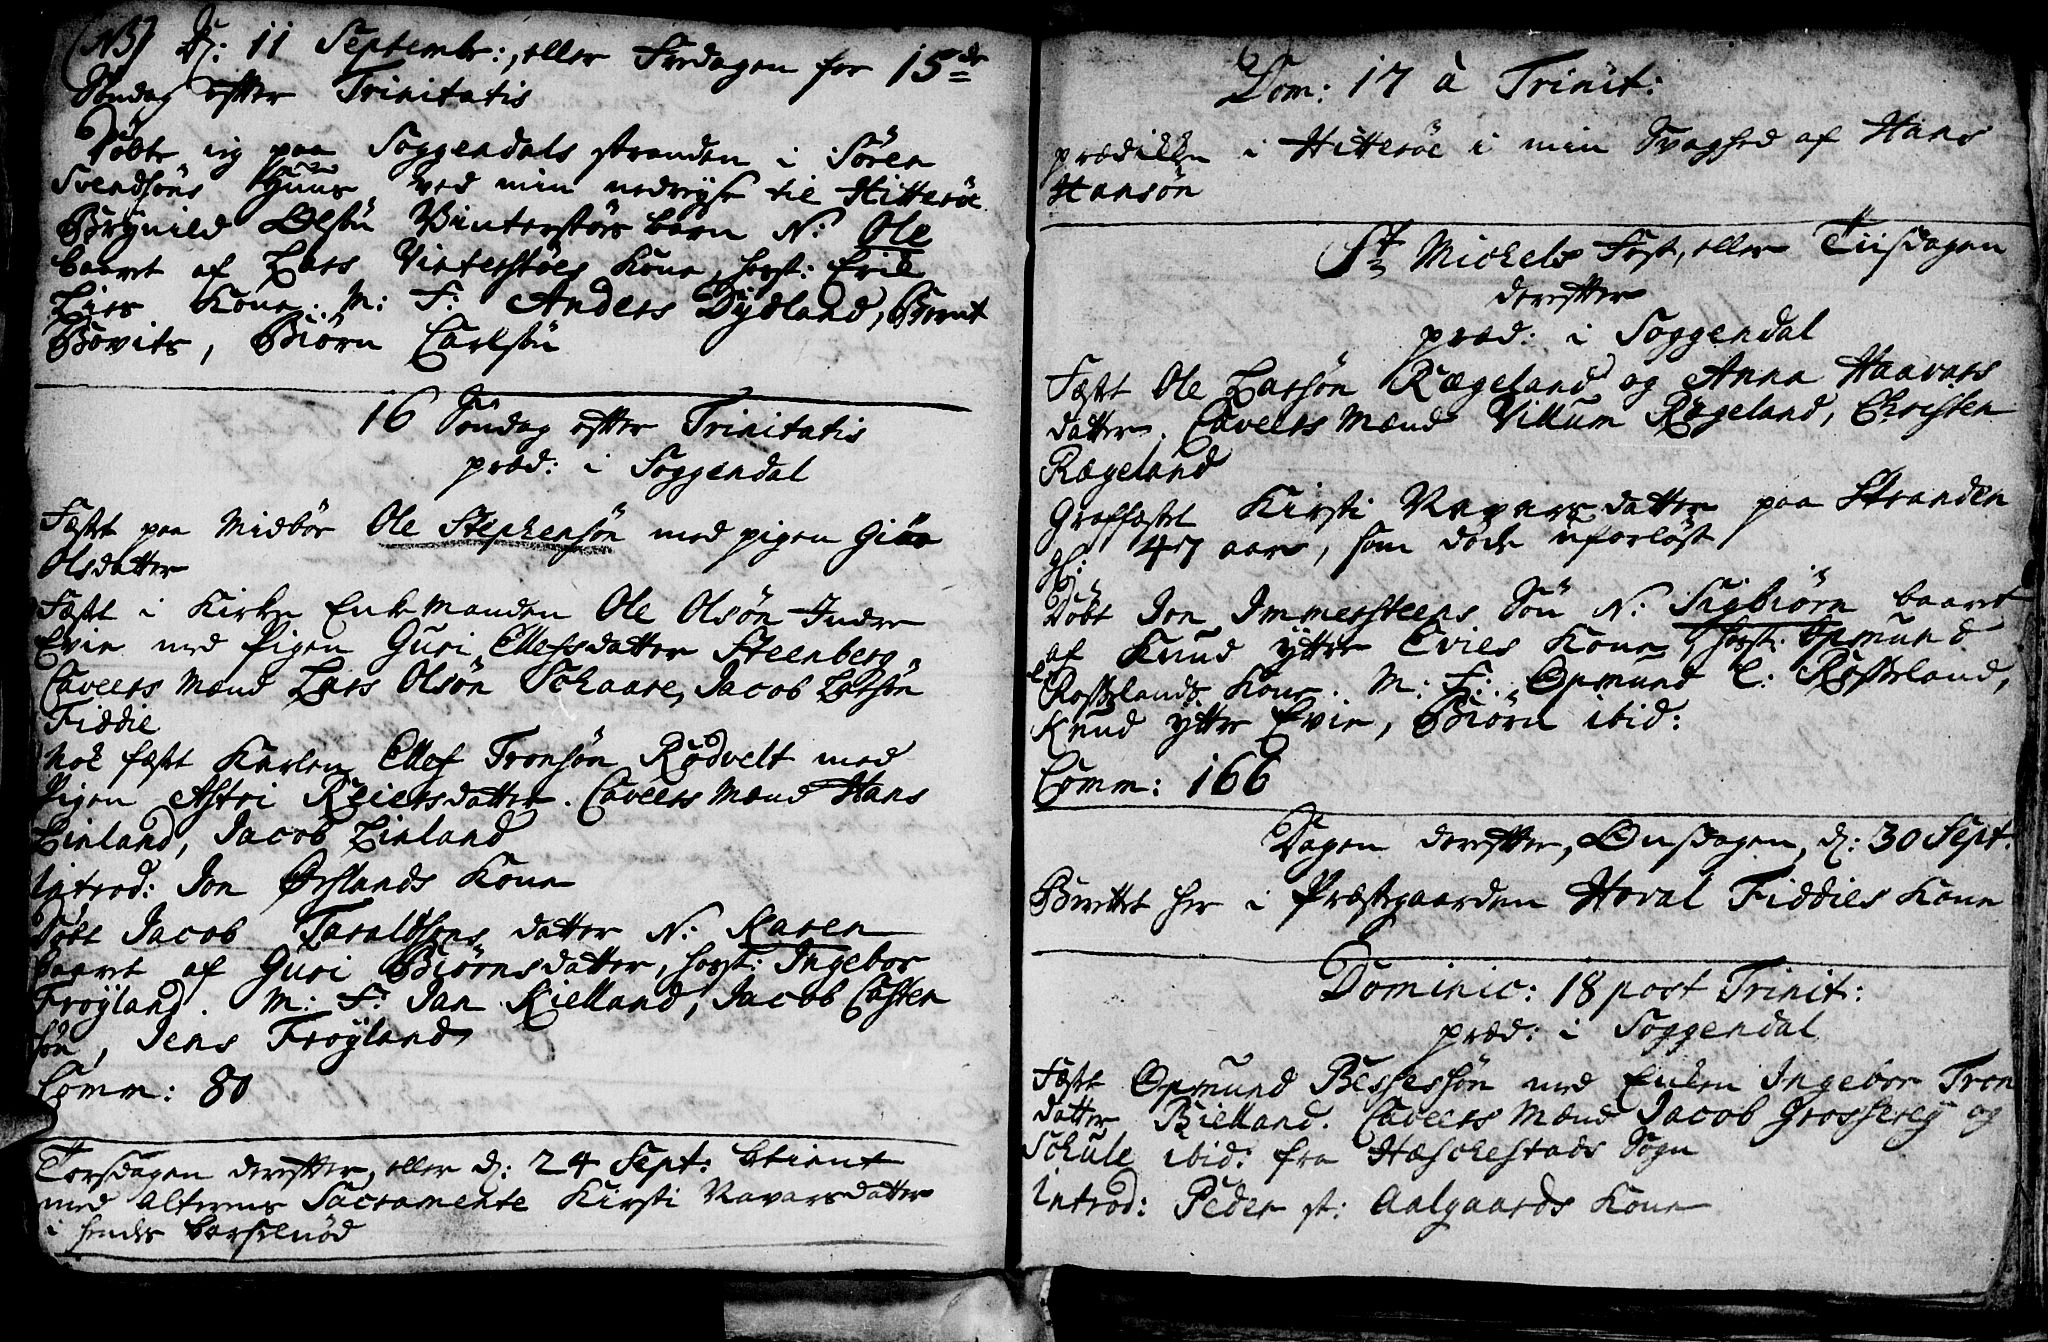 (NB) D: 11 Septembr:, eller Fredagen for 15de
Søndag efter Trinitatis
Döbte ieg paa Soggendals stranden i Sören
Svendsöns Huus, ved min nedreyse til Hitteröe
Brÿnild Olsön Vinterstöes barn N: Ole
baaret af Lars Vinterstöes Kone, forst: Erik
Lies Kone. M: F: Anders Dÿdland, Berent
Bovits, Biörn Carlsön
16 Söndag efter Trinitatis
præd: i Soggendal
Fæst paa Midböe Ole Stephensön med pigen
Olsdatter
Fæst i Kirke Enkemanden Ole Olsön Indre
Evie med Pigen Guri Ellefsdatter Steenberg.
Caveers Mænd Lars Olsön Schaare, Jacob Larsön
Fiddie
Nok fæst Karlen Ellef Tronsön Rödvelt med
Pigen Astri Reiersdatter. Caveers Mænd Hans
Linland, Jacob Linland
Introd: Jon Örslands Kone
Döbt Jacob Taraldsons datter N: Karen
baaret af Guri Biörnsdatter, forst: Ingebor
Fröÿland. M: F: Jan Kielland, Jacob Casten
sön, Jens Fröÿland
Comm: 80
Torsdagen derefter, eller d: 24 Sept: betient
med Alterens Sacramente Kirsti Ravarsdatter
i hendes barselnöd
Dom: 17 à Trinit:
prædiken i Hitteröe i min Svaghed af Hans
Hansön
St Michels Fest, eller Tiisdagen
derefter
præd: i Soggendal
Fæst Ole Larsön Rægeland og Anna Haavars
datter. Caveers Mænd Villum Rægeland, Christen
Rægeland
Graffæstet Kirsti Ravarsdatter paa Stranden
gl: 47 aar, som döde uforlöst
Döbt Jon Immersteens Sön N: Sigbiörn baaret
af Knud ÿttre Evies Kone, forst: Opmund
Rosslands Kone. M: F: Opmund Rossland,
Knud ÿttre Evie, Biörn ibid:
Comm: 166
Dagen derefter, Onsdagen, d: 30 Sept.
Berettet her i Præstegaarden Hoval Fiddies Kone
Dominic: 18 post Trinit:
præd: i Soggendal
Fæst Opmund Bessessön med Enken Ingebor Tron
datter Bielland. Caveers Mænd Jacob Grosserey og
Schule ibid: fra Hæschestads Sogn
Introd: Peder st: Aalgaards Kone